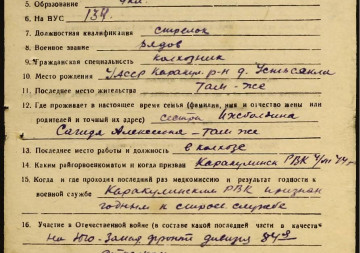 5. Образование
6. На ВУС 134
7. Должностная квалификация стрелок
8. Военное звание рядов
9. Гражданская специальность колхозник
10. Место рождения УАССР Каракул. р-н д.
11. Последнее место жительства Там-же
12. Где проживает в настоящее время семья (фамилия, имя и отчество жены или
родителей и точный их адрес) сестра
Сагида Алексеевна - там же
13. Последнее место работы и должность в колхозе
14. Каким райгорвоенкоматом и когда призван Каракулинск РВК
15. Когда и где проходил последний раз медкомиссию и результат годности к
военной службе Каракулинский РВК признан
годным к строев службе
16. Участие в Отечественной войне (в составе какой последней части в качестве
На Юго-Запад фронте дивизия 84й